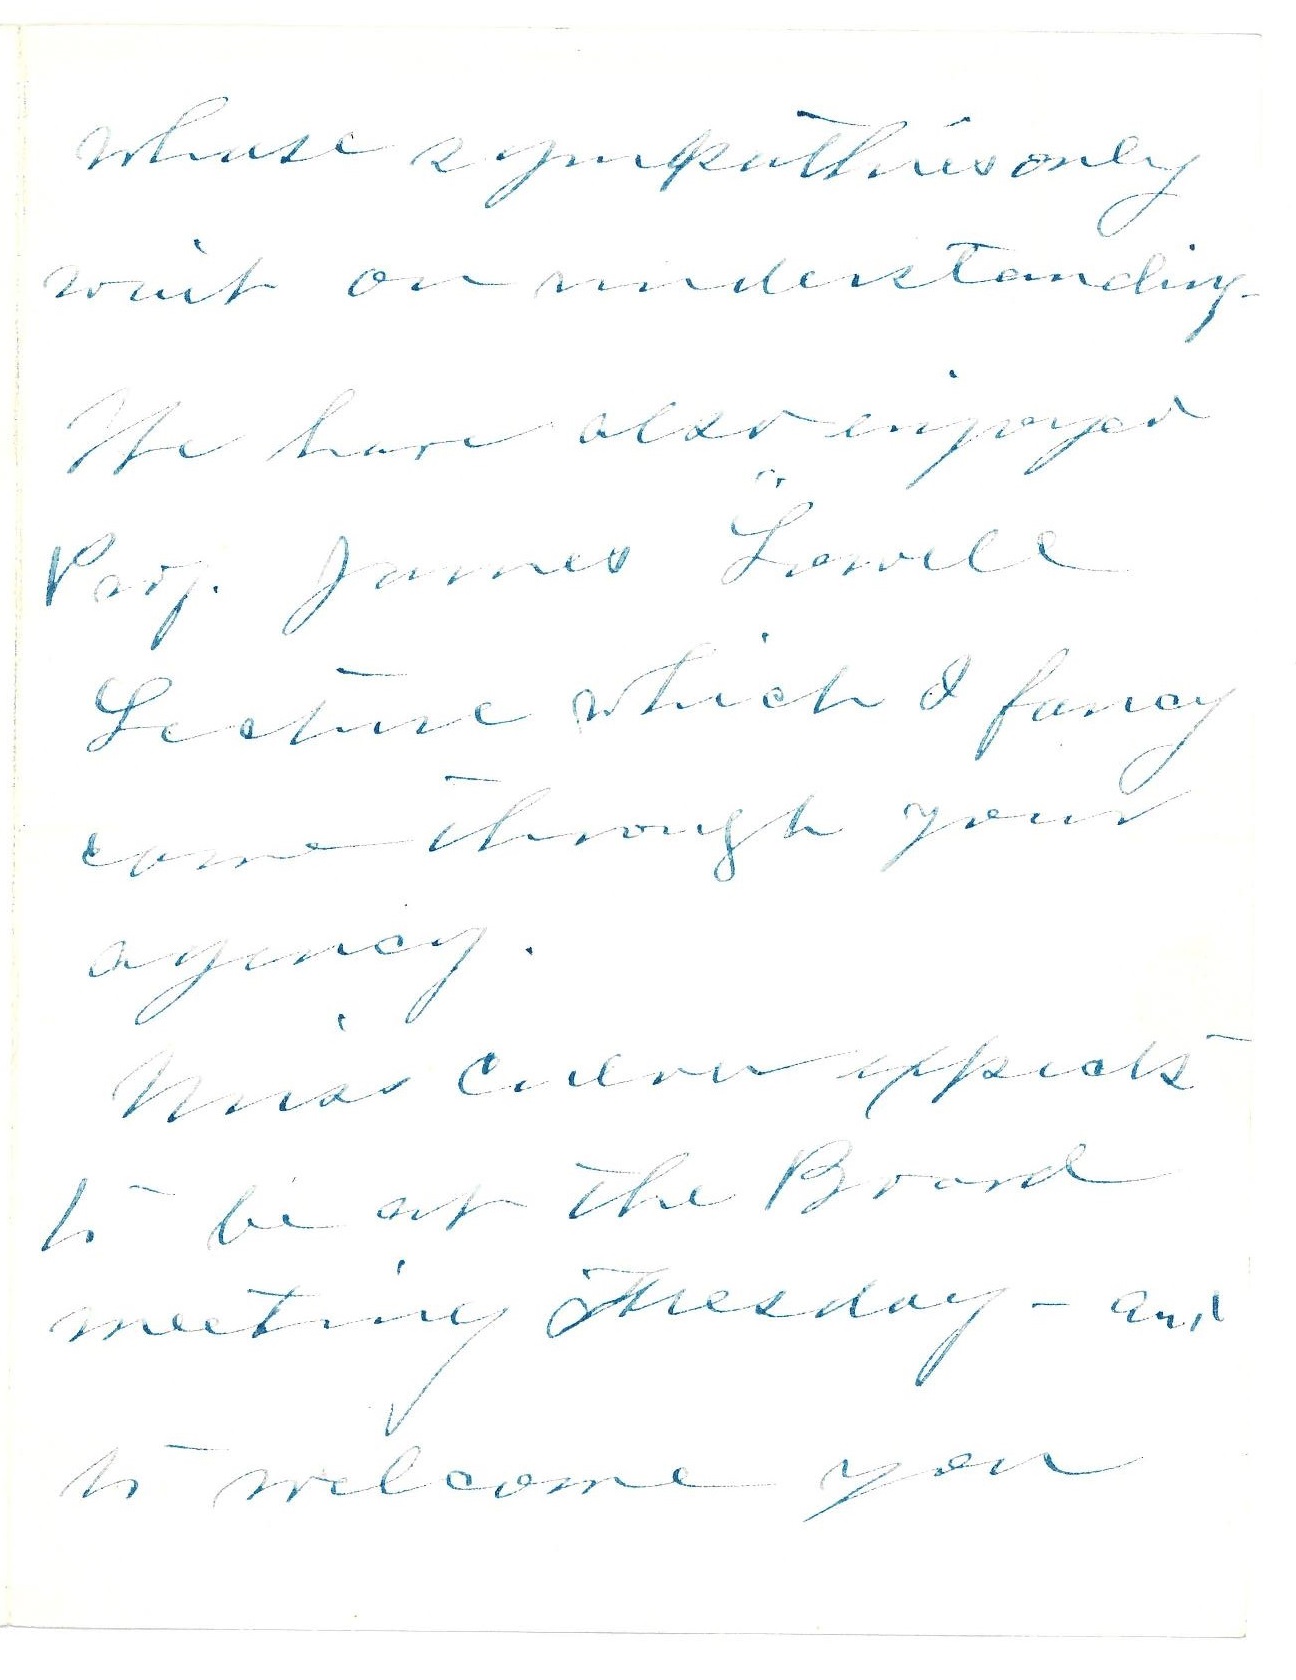 whose sympathies only
wait on understanding -
We have also enjoyed
Prof. James "Lowell
Lecture which I fancy
came through your
agency.
Miss expects
to be at the Board
meeting Tuesday - and
to welcome you